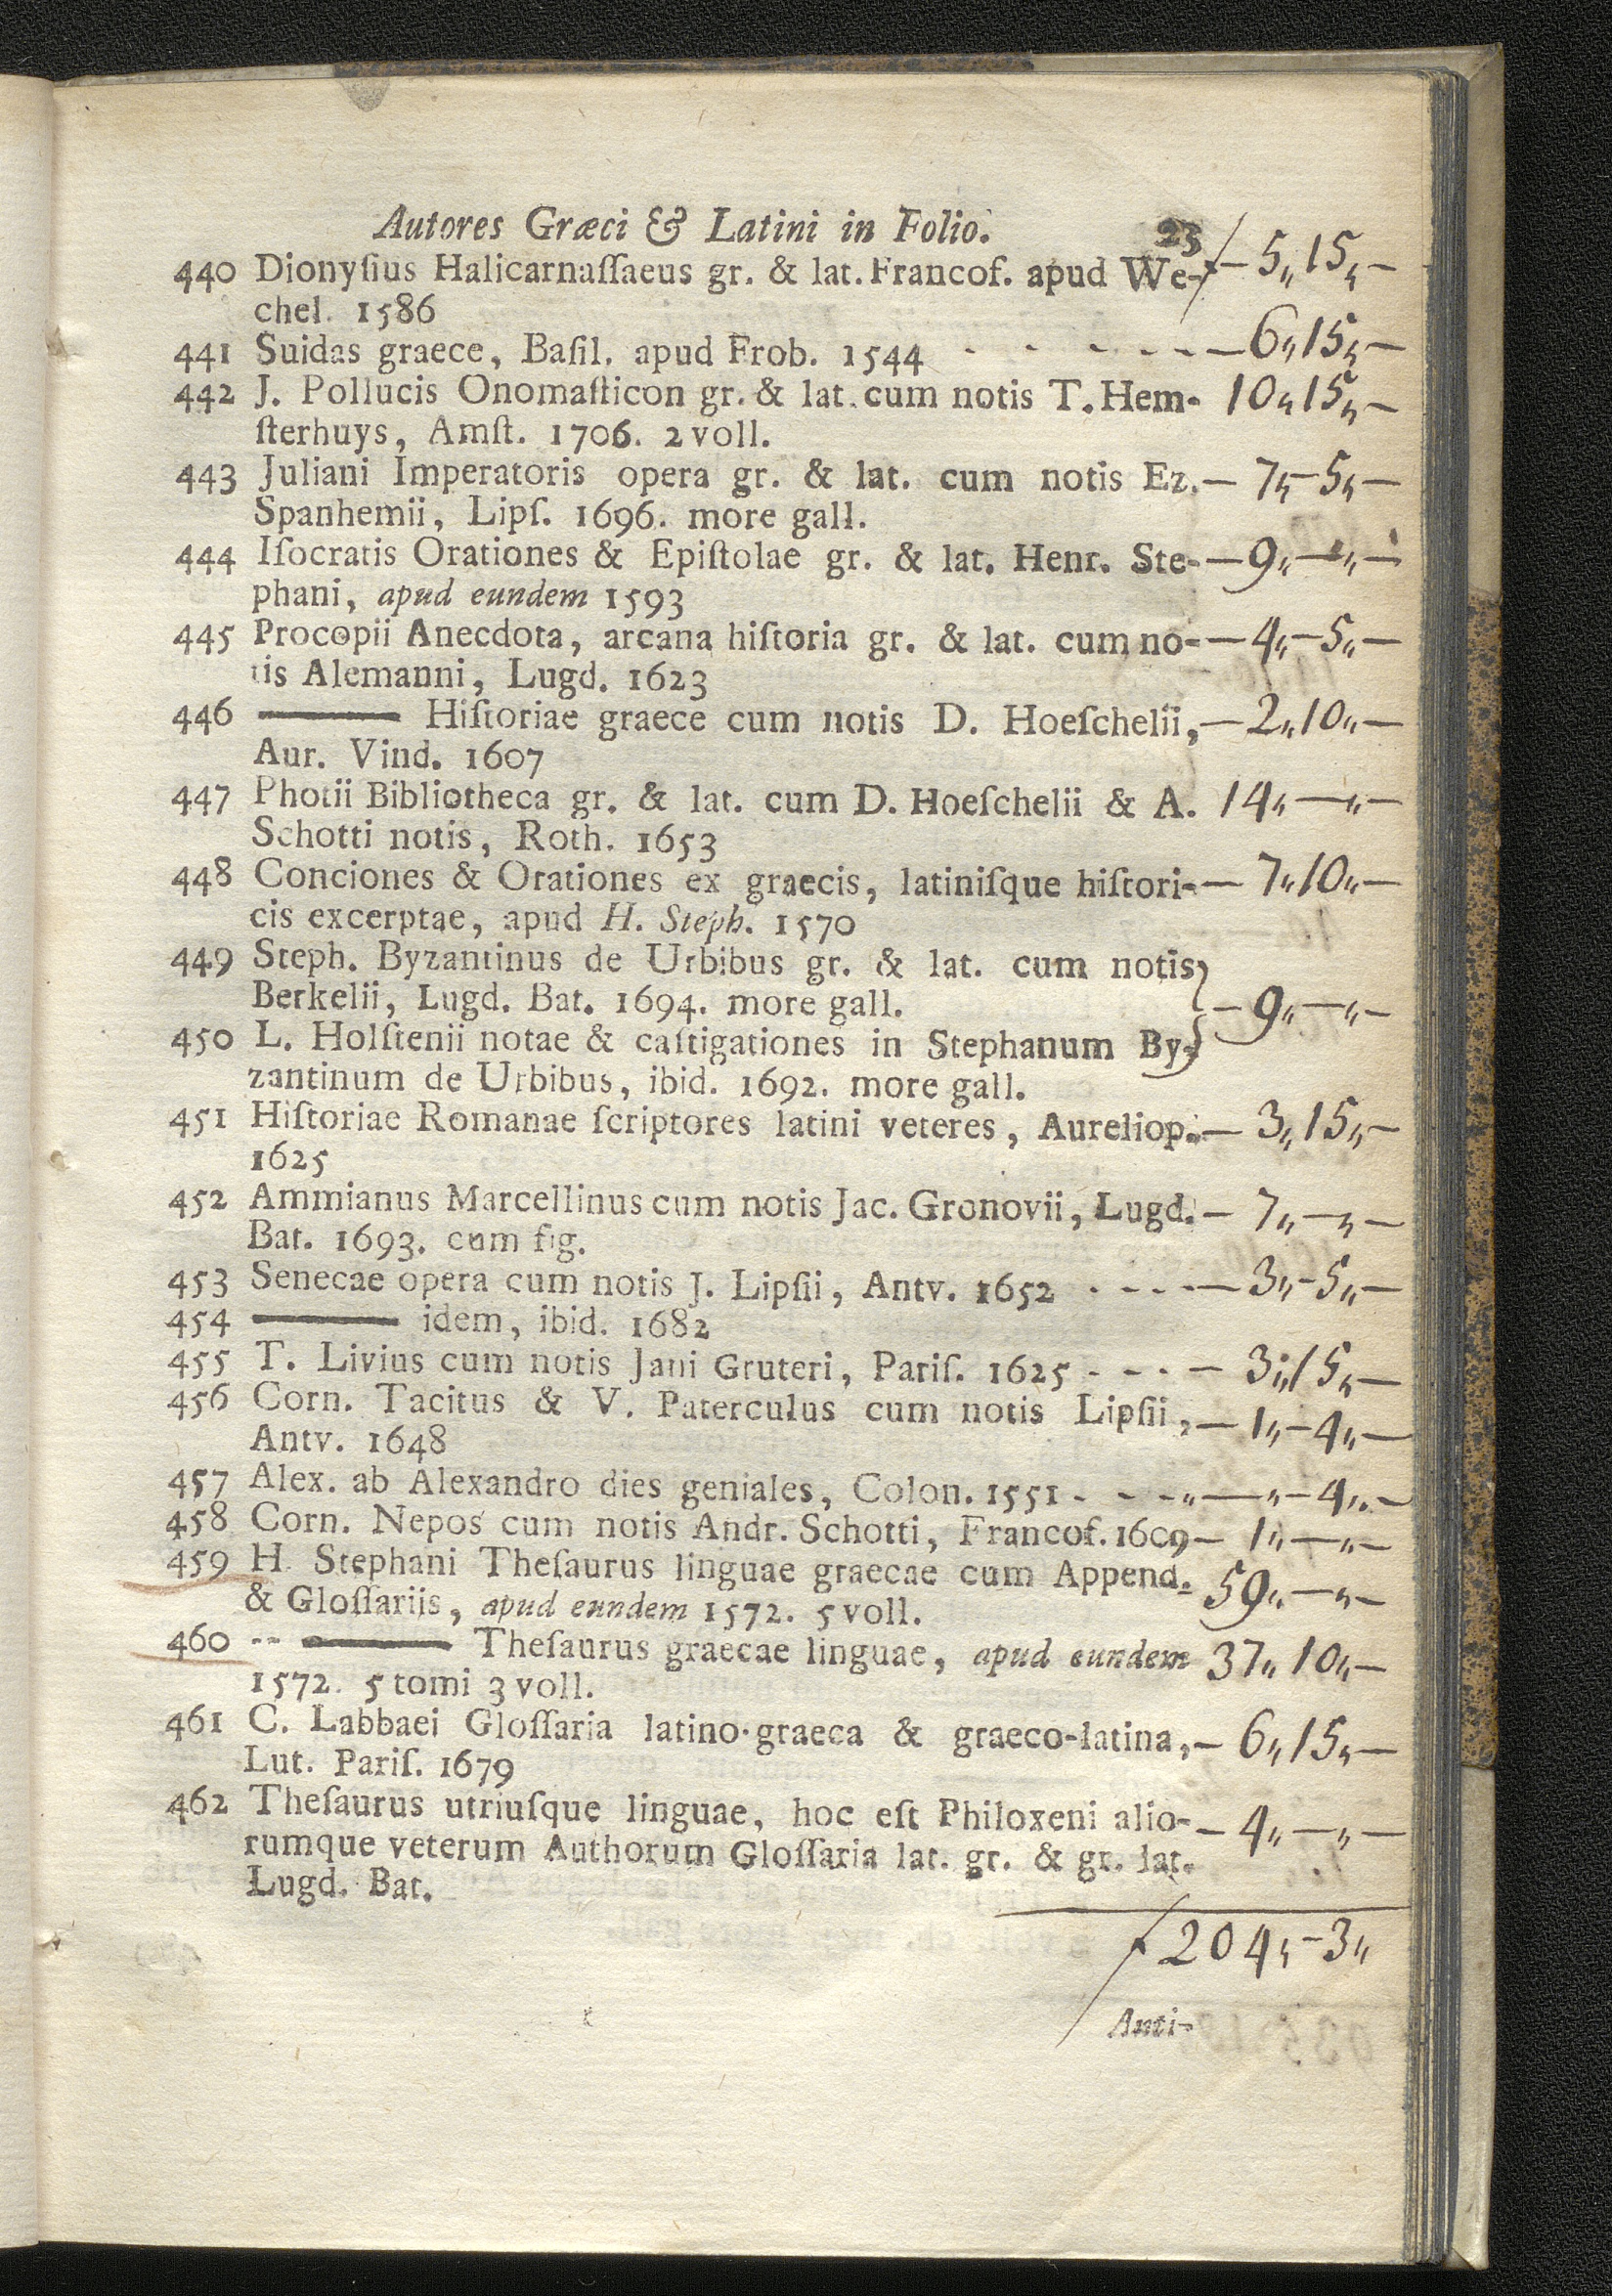 Autores Græci & Latini in Folio. 23
440 Dionyſius Halicarnaſſaeus gr. & lat. Francof. apud We- f — 5,, 15,, —
chel. 1586
441 Suidas graece, Baſil. apud Frob. 1544 - - - - - — 6,, 15,, —
442 J. Pollucis Onomaſticon gr. & lat. cum notis T. Hem- 10,, 15,, —
ſterhuys, Amſt. 1706. 2 voll.
443 Juliani Imperatoris opera gr. & lat. cum notis Ez. — 7,, — 5,, —
Spanhemii, Lipſ. 1696. more gall.
444 Iſocratis Orationes & Epiſtolae gr. & lat. Henr. Ste- — 9,, — ,, —
phani, apud eundem 1593
445 Procopii Anecdota, arcana hiſtoria gr. & lat. cum no- — 4,, — 5,, —
tis Alemanni, Lugd. 1623
446 ——— Hiſtoriae graece cum notis D. Hoeſchelii, — 2,, 10,, —
Aur. Vind. 1607
447 Photii Bibliotheca gr. & lat. cum D. Hoeſchelii & A. 14,, — ,, —
Schotti notis, Roth. 1653
448 Conciones & Orationes ex graecis, latiniſque hiſtori- — 7,, 10,, —
cis excerptae, apud H. Steph. 1570
449 Steph. Byzantinus de Urbibus gr. & lat. cum notis
Berkelii, Lugd. Bat. 1694. more gall. — 9,, — ,, —
450 L. Holſtenii notae & caſtigationes in Stephanum By-
zantinum de Urbibus, ibid. 1692. more gall.
451 Hiſtoriae Romanae ſcriptores latini veteres, Aureliop. — 3,, 15,, —
1625
452 Ammianus Marcellinus cum notis Jac. Gronovii, Lugd. — 7,, — ,, —
Bat. 1693. cum fig.
453 Senecae opera cum notis J. Lipſii, Antv. 1652 - - - — 3,, — 5,, —
454 ——— idem, ibid. 1682
455 T. Livius cum notis Jani Gruteri, Pariſ. 1625 - - - — 3,, 15,, —
456 Corn. Tacitus & V. Paterculus cum notis Lipſii, — 1,, — 4,, —
Antv. 1648
457 Alex. ab Alexandro dies geniales, Colon. 1551 - - - ,, — ,, — 4,, —
458 Corn. Nepos cum notis Andr. Schotti, Francof. 1609 — 1,, — ,, —
459 H. Stephani Theſaurus linguae graecae cum Append. 59,, — ,, —
& Gloſſariis, apud eundem 1572. 5 voll.
460 -- ——— Theſaurus graecae linguae, apud eundem 37,, 10,, —
1572. 5 tomi 3 voll.
461 C. Labbaei Gloſſaria latino-graeca & graeco-latina, — 6,, 15,, —
Lut. Pariſ. 1679
462 Theſaurus utriuſque linguae, hoc eſt Philoxeni alio- — 4,, — ,, —
rumque veterum Authorum Gloſſaria lat. gr. & gr. lat.
Lugd. Bat.
f 204,, — 3,,
Anti-